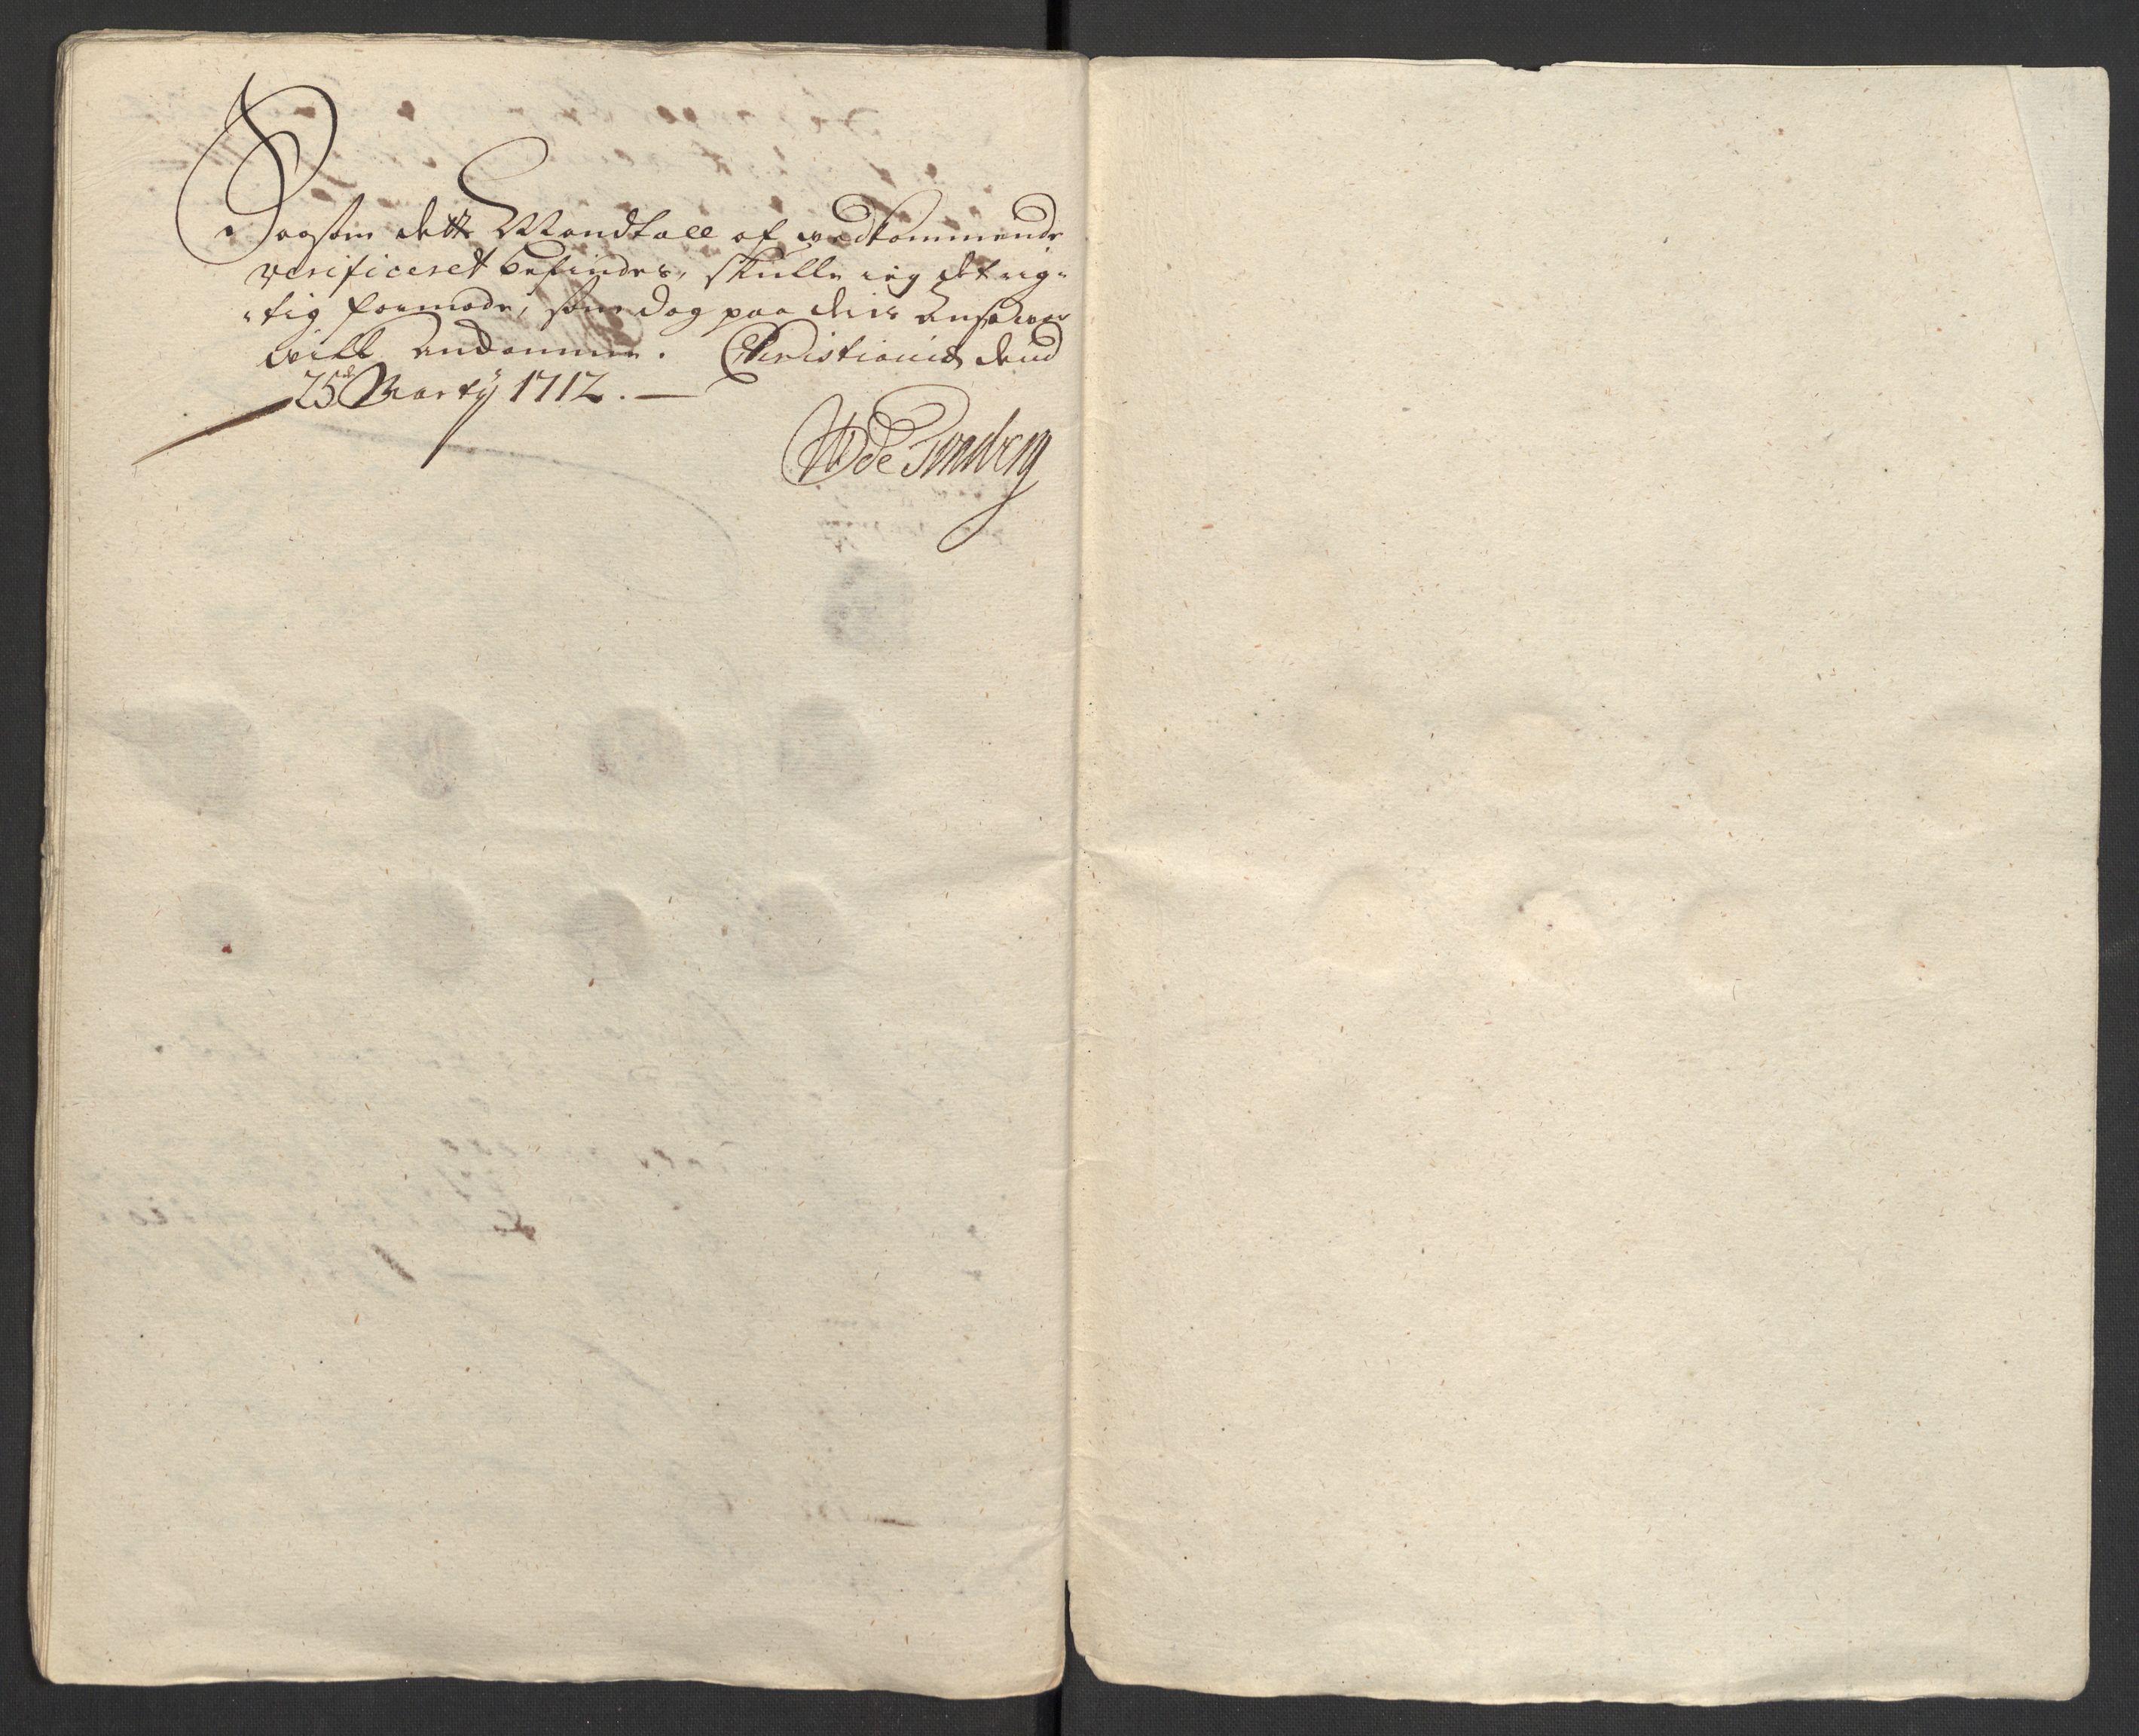 Saasom dette Mandtall af vedkommende
verificeret befindes, skulle ieg det rig-
-tig formode, som dog paa deris Ansvar
will andkomme. Christiania dend
25de Marty 1712. —
WdeTonsberg